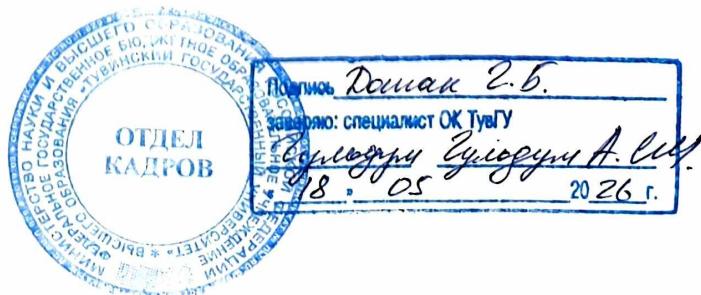 МИНИСТЕРСТВО НАУКИ И ВЫСШЕГО ОБРАЗОВАНИЯ РОССИЙСКОЙ ФЕДЕРАЦИИ
ФЕДЕРАЛЬНОЕ ГОСУДАРСТВЕННОЕ БЮДЖЕТНОЕ ОБРАЗОВАТЕЛЬНОЕ УЧРЕЖДЕНИЕ
ВЫСШЕГО ОБРАЗОВАНИЯ "ТУВИНСКИЙ ГОСУДАРСТВЕННЫЙ УНИВЕРСИТЕТ" *
ОТДЕЛ
КАДРОВ
Подпись Дошак Г.Б.
заверяю: специалист ОК ТувГУ
А. Ш.
18 " 05 2026 г.